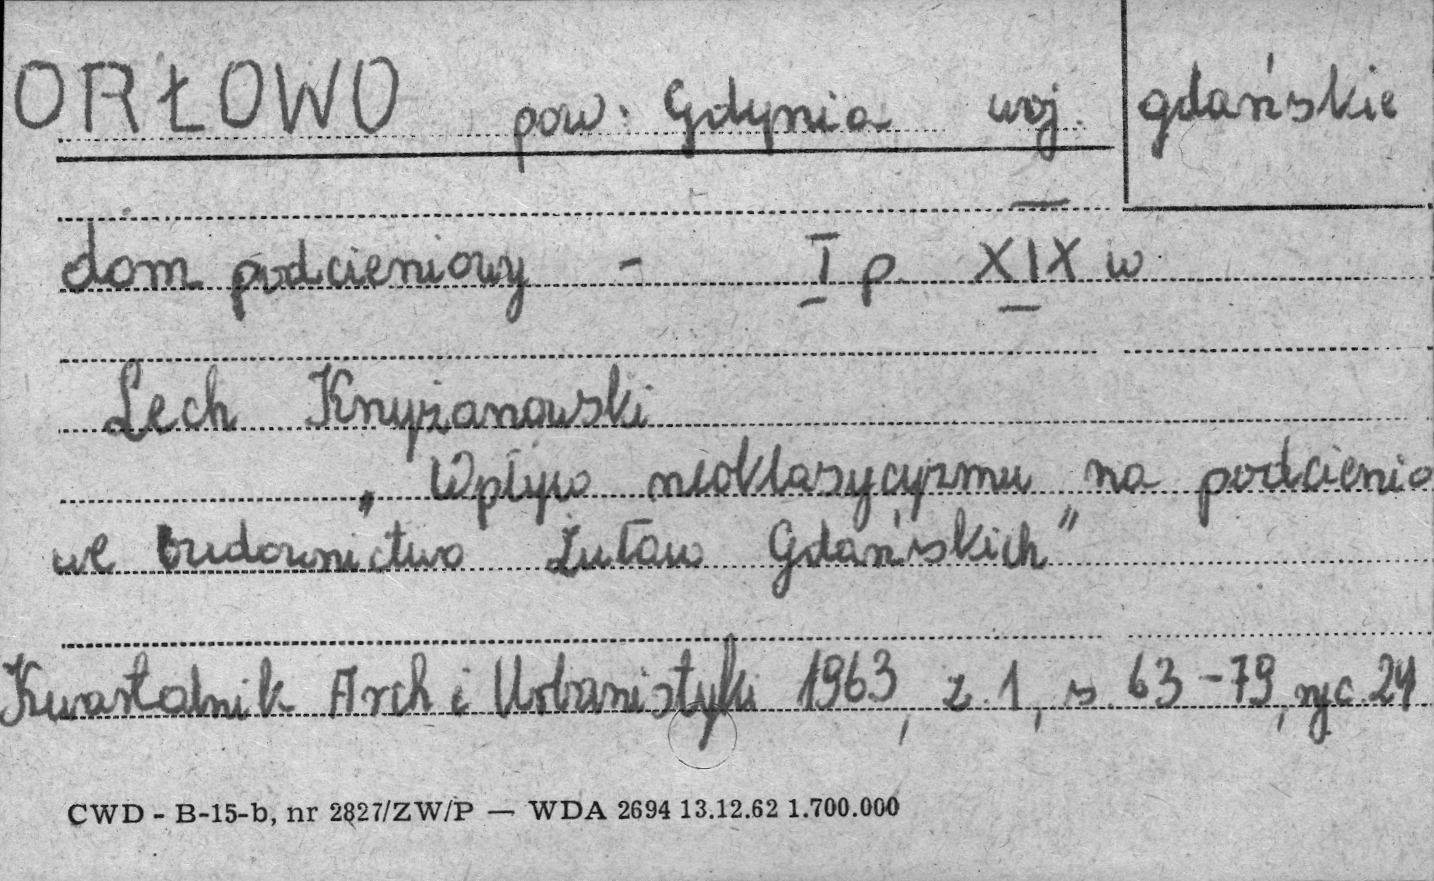 ORŁOWO pow. Gdynia woj. gdańskie
dom podcieniowy - I p. XIX w.
Lech Krzyżanowski
„Wpływ neoklasycyzmu na podcienio
we budownictwo Żuław Gdańskich"
Kwartalnik Arch i Urbanistyki 1963, z. 1, s. 63-79, ryc. 24
CWD - B-15-b, nr 2827/ZW/P — WDA 2694 13.12.62 1.700.000